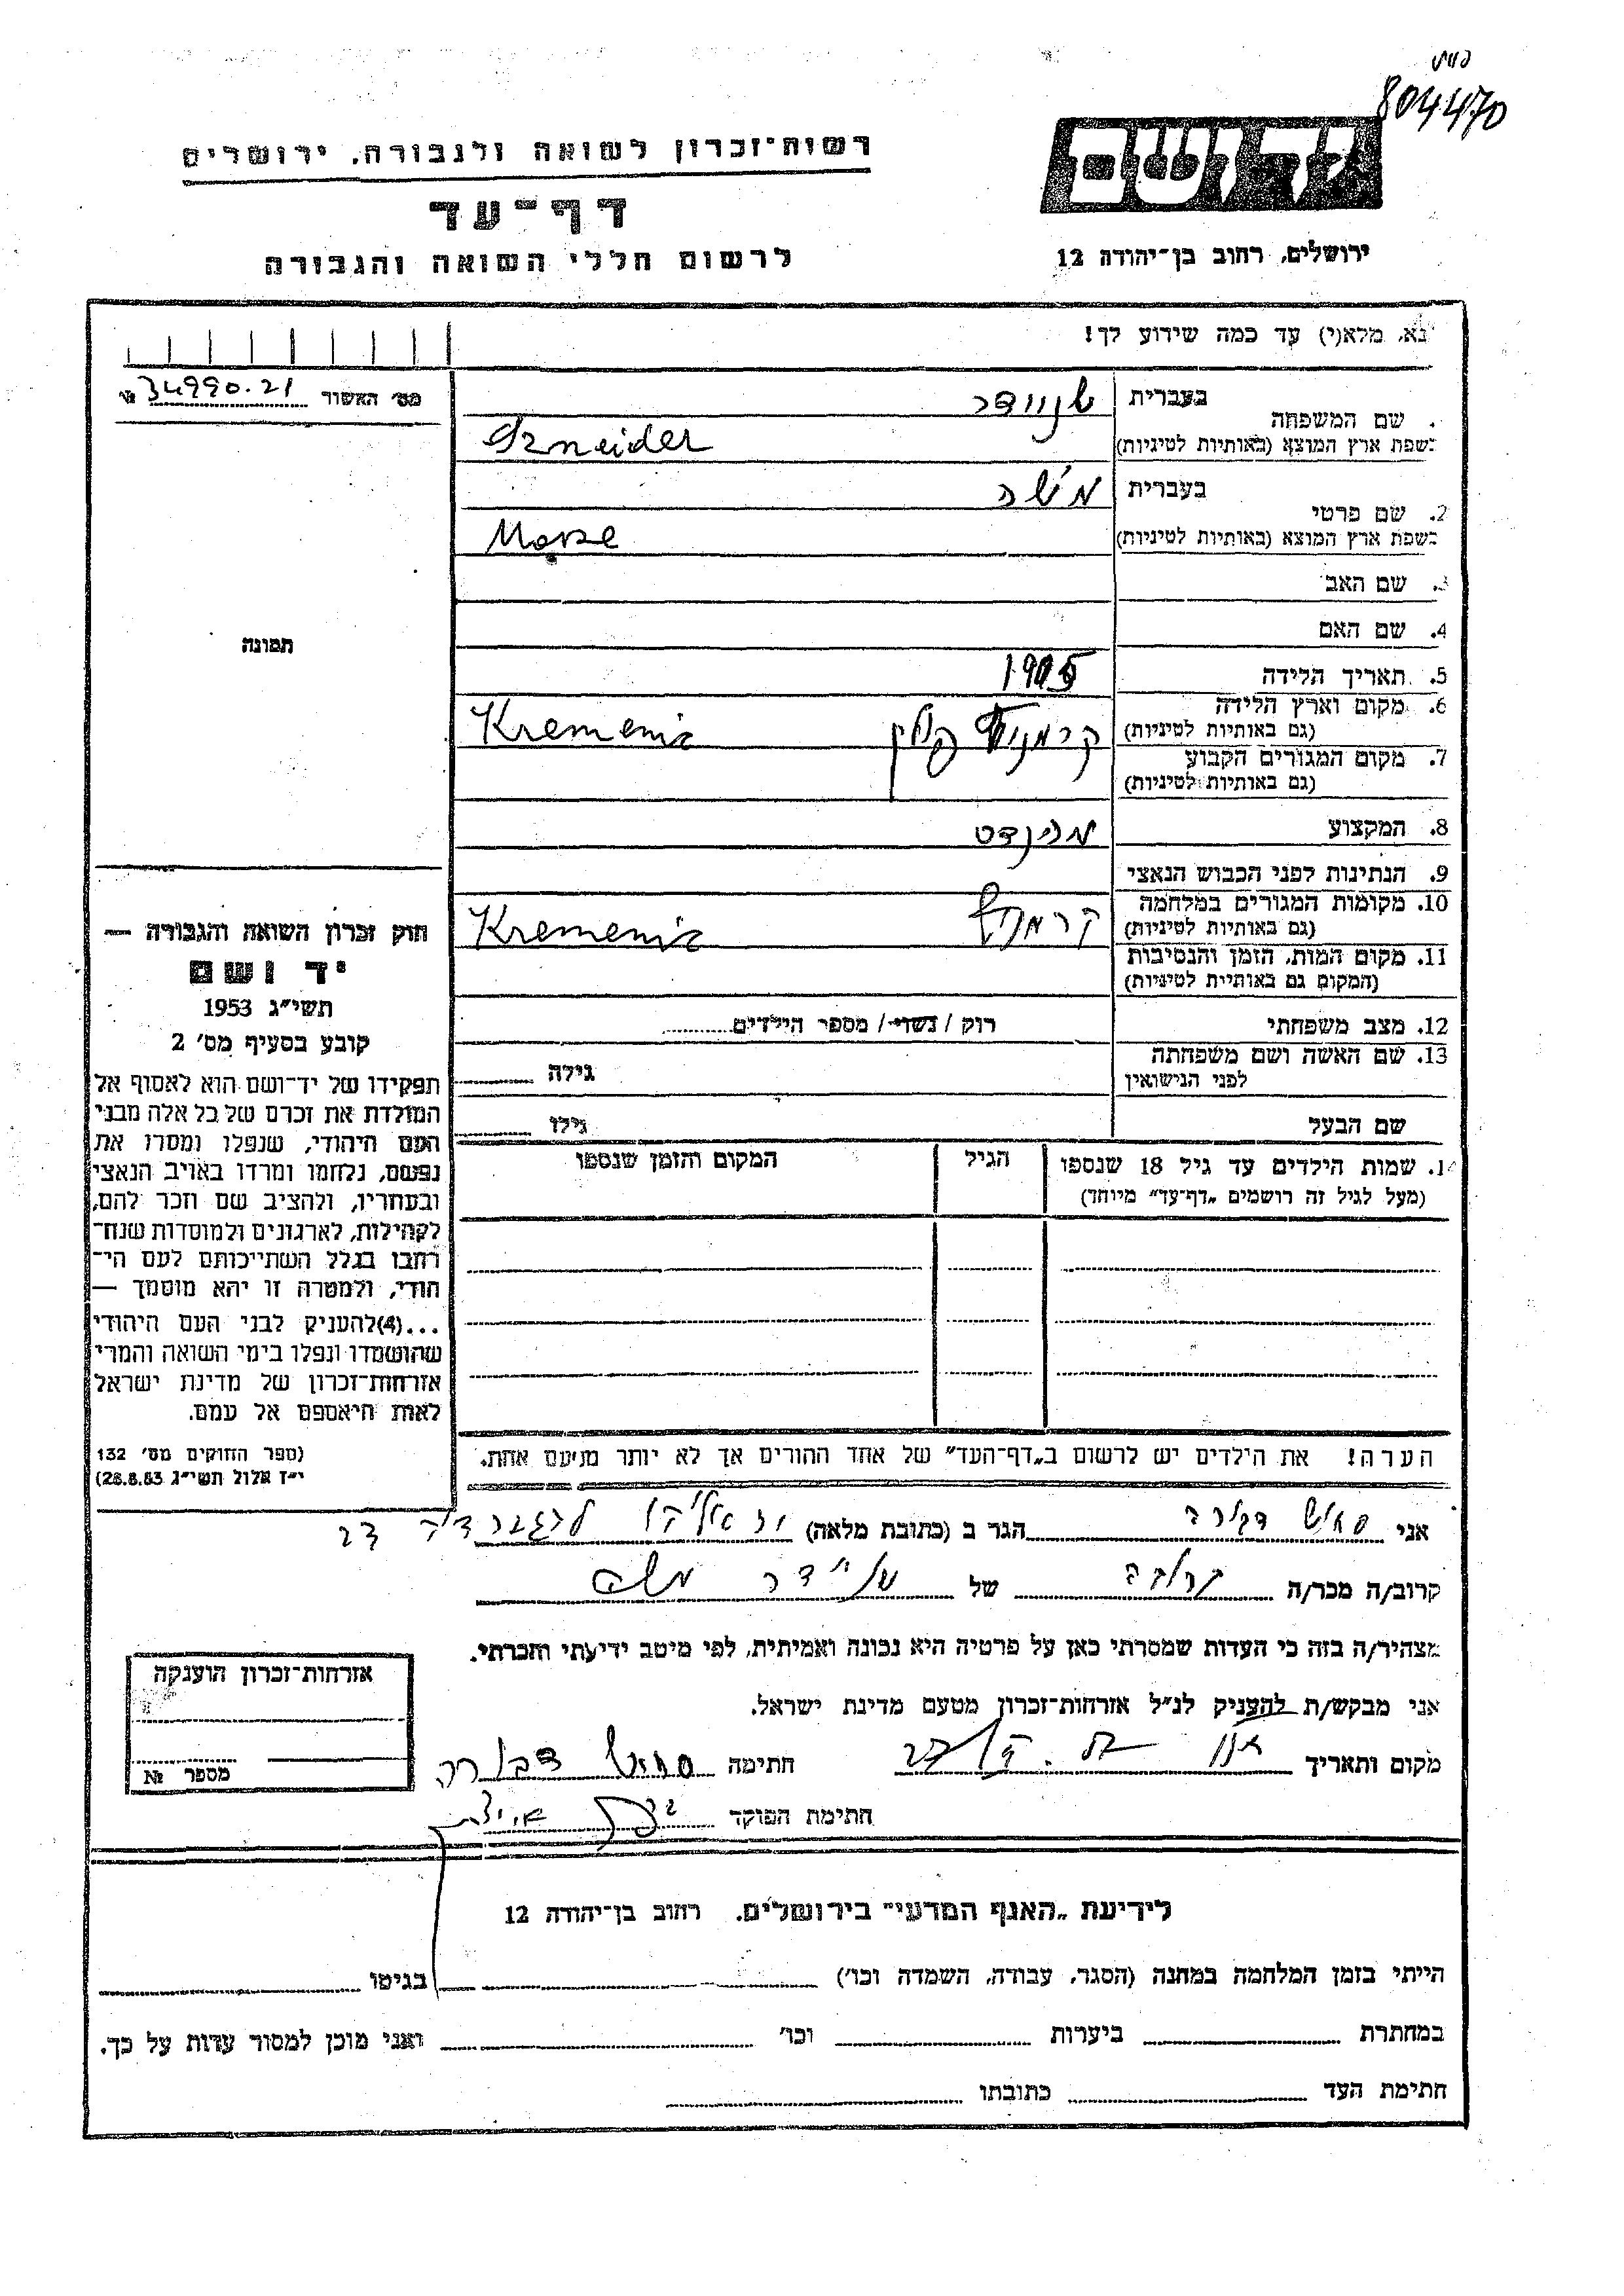 804470
רשות־זכרון לשואה ולגבורה, ירושלים
דף־עד
לרשום חללי השואה והגבורה
ירושלים, רחוב בן־יהודה 12
נא, מלא(י) עד כמה שידוע לך!
מס׳ האשור 34990.21 №
שם המשפחה
בעברית
שניידר
בשפת ארץ המוצא (באותיות לטיניות) Szneider
2. שם פרטי
בעברית משה
בשפת ארץ המוצא (באותיות לטיניות) Mosze
3. שם האב
4. שם האם
5. תאריך הלידה 1905
6. מקום וארץ הלידה
(גם באותיות לטיניות) קרמניץ פולין Kremenic
7. מקום המגורים הקבוע
(גם באותיות לטיניות)
8. המקצוע
9. הנתינות לפני הכבוש הנאצי
10. מקומות המגורים במלחמה
(גם באותיות לטיניות) קרמניץ Kremenic
11. מקום המות, הזמן והנסיבות
(המקום גם באותיות לטיניות)
12. מצב משפחתי רוק / נשוי / מספר הילדים
13. שם האשה ושם משפחתה
לפני הנישואין
גילה
שם הבעל גילו
תמונה
חוק זכרון השואה והגבורה —
יד ושם
תשי״ג 1953
קובע בסעיף מס׳ 2
תפקידו של יד־ושם הוא לאסוף אל
המולדת את זכרם של כל אלה מבני
העם היהודי, שנפלו ומסרו את
נפשם, נלחמו ומרדו באויב הנאצי
ובעוזריו, ולהציב שם וזכר להם,
לקהילות, לארגונים ולמוסדות שנח־
רבו בגלל השתייכותם לעם הי־
הודי, ולמטרה זו יהא מוסמך —
...(4)להעניק לבני העם היהודי
שהושמדו ונפלו בימי השואה והמרי
אזרחות־זכרון של מדינת ישראל
לאות היאספם אל עמם.
(ספר החוקים מס׳ 132
י״ז אלול תשי״ג 28.8.53)
14. שמות הילדים עד גיל 18 שנספו
(מעל לגיל זה רושמים „דף־עד״ מיוחד)
הגיל
המקום והזמן שנספו
הערה! את הילדים יש לרשום ב„דף־העד״ של אחד ההורים אך לא יותר מפעם אחת.
אני דבורה הגר ב (כתובת מלאה)
קרוב/ה מכר/ה קרובה של שניידר משה
מצהיר/ה בזה כי העדות שמסרתי כאן על פרטיה היא נכונה ואמיתית, לפי מיטב ידיעתי והכרתי.
אני מבקש/ת להעניק לנ״ל אזרחות־זכרון מטעם מדינת ישראל.
מקום ותאריך חתימה דבורה
חתימת הפוקד
אזרחות־זכרון הוענקה
מספר №
לידיעת „האגף המדעי״ בירושלים, רחוב בן־יהודה 12
הייתי בזמן המלחמה במחנה (הסגר, עבודה, השמדה וכו׳) בגיטו
במחתרת ביערות וכו׳ ואני מוכן למסור עדות על כך.
חתימת העד כתובתו